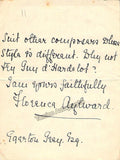 11
suit other composers whose
style is different. Why not
try Guy d'Hardelot?
I am yours faithfully
Florence Aylward
Egerton Grey. Esq.